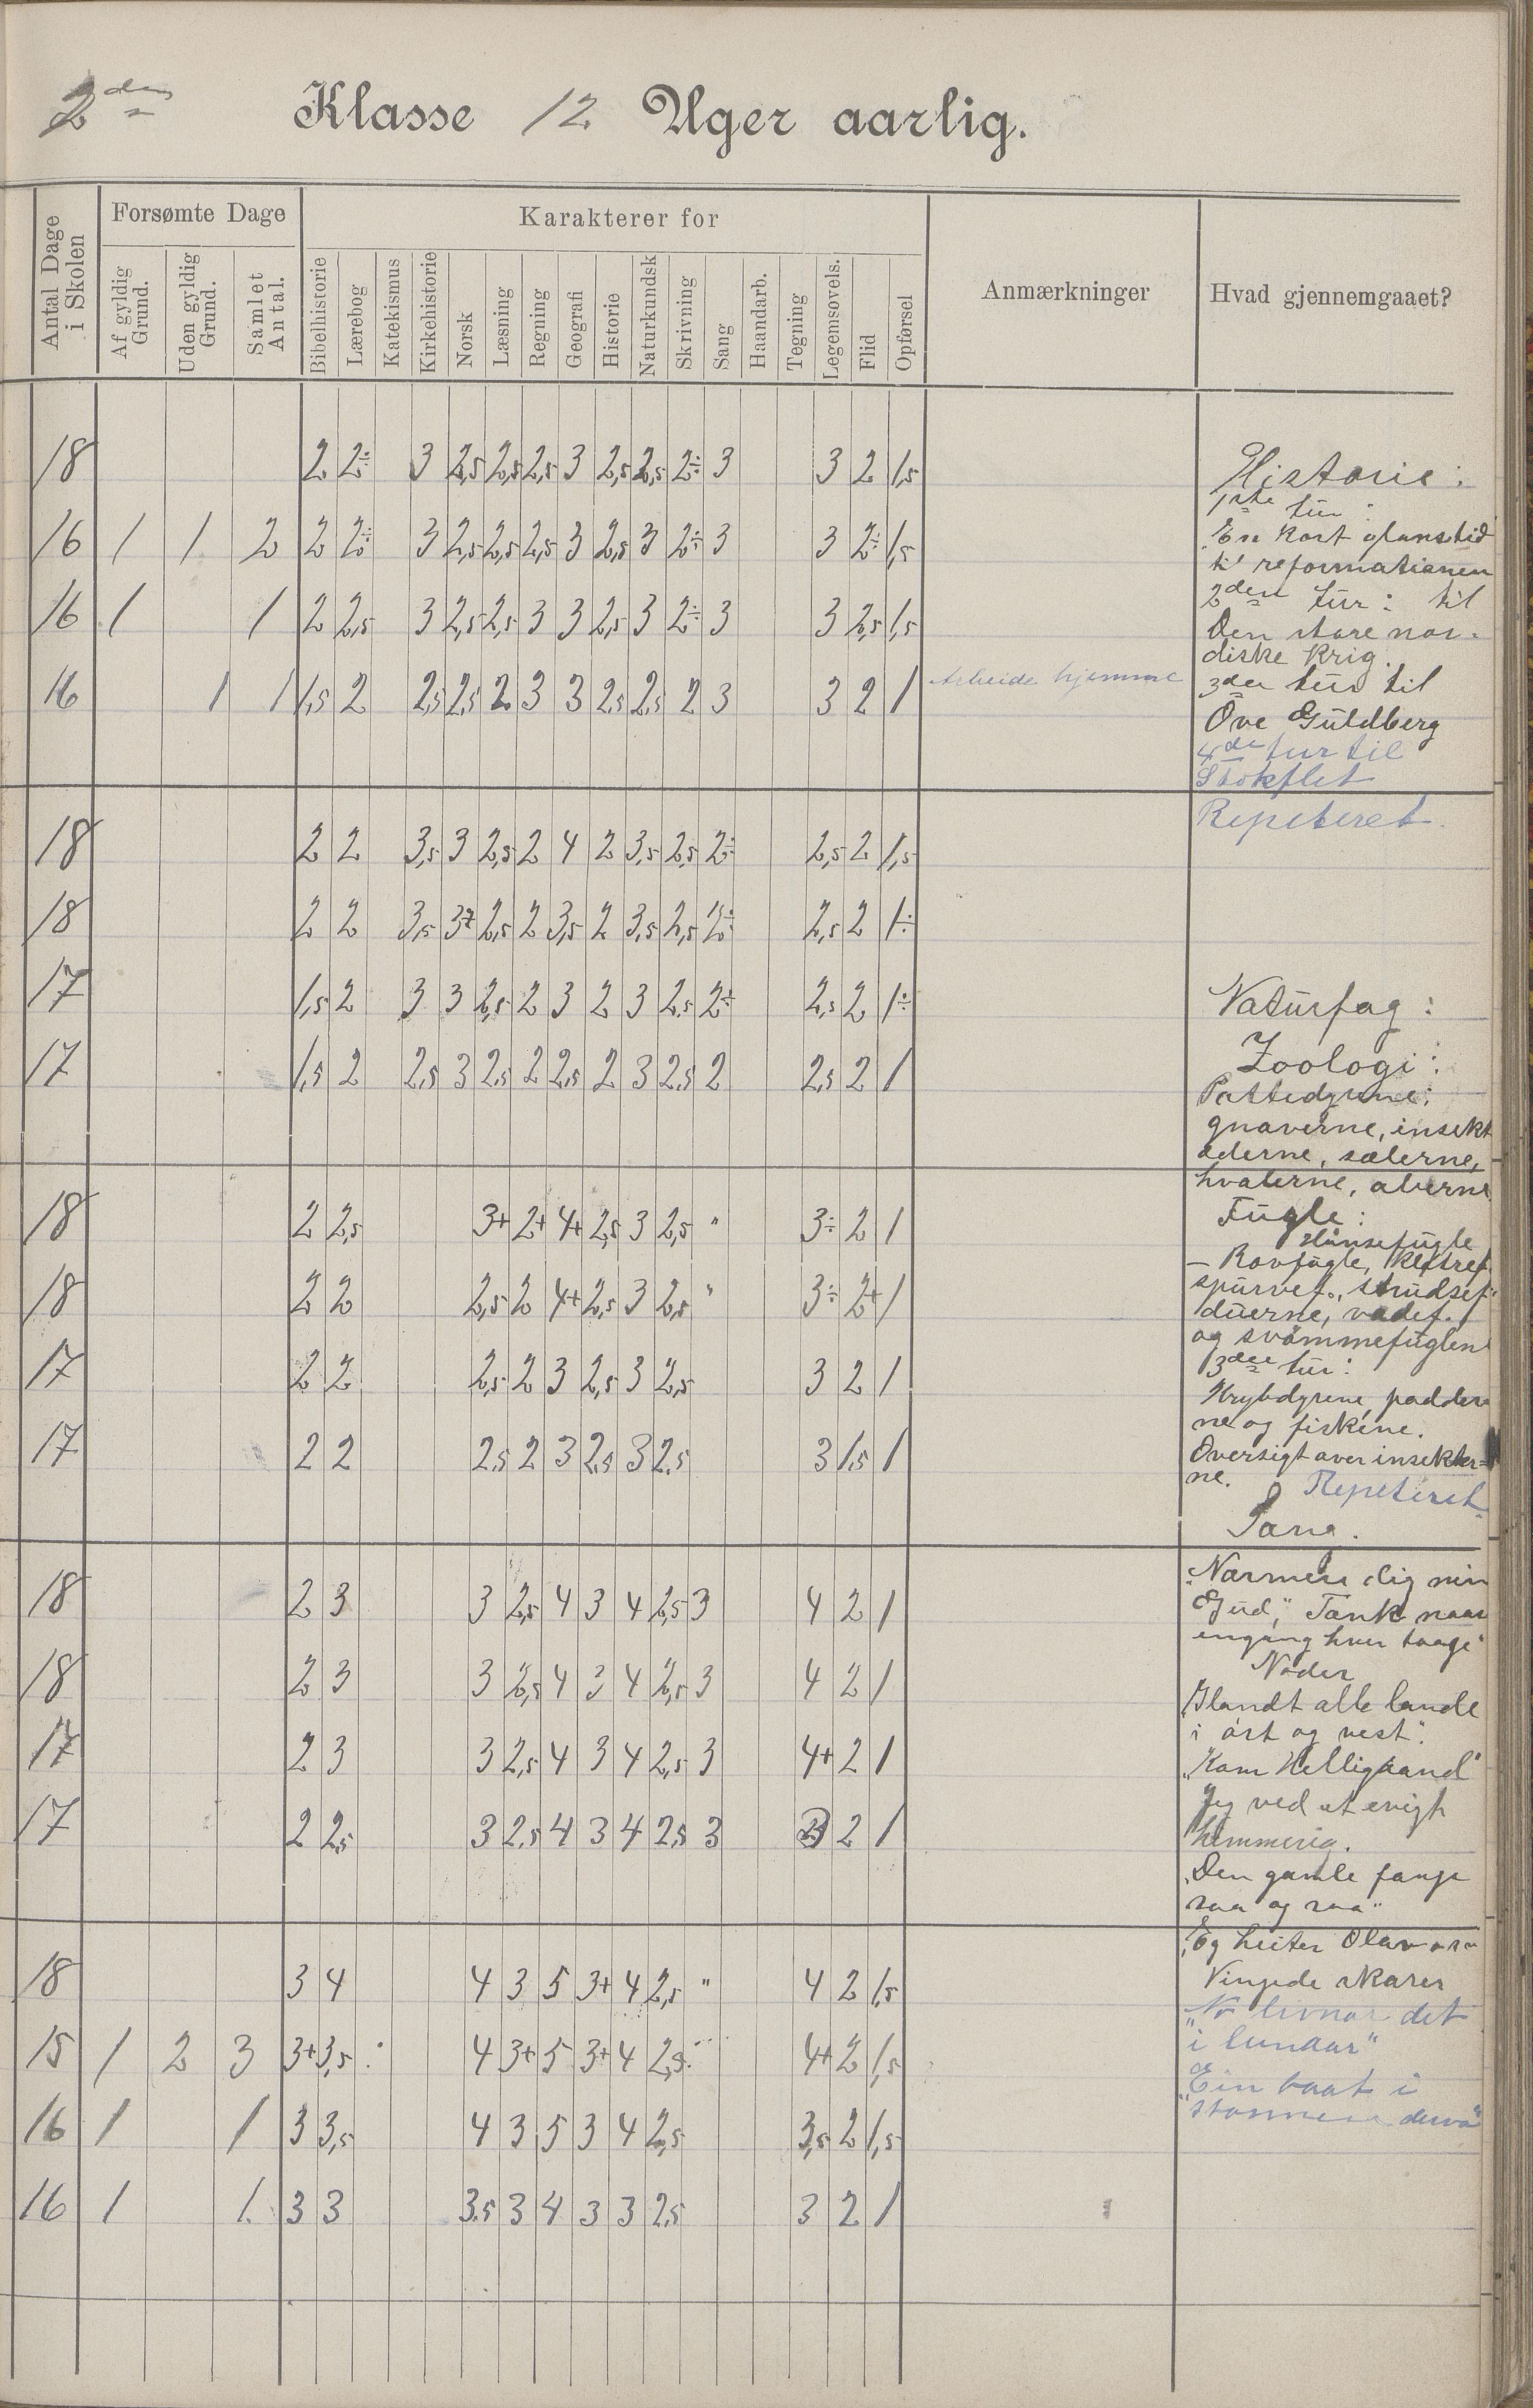 2den Klasse 12 Uger aarlig.
Antal Dage i Skolen
Forsømte Dage
Af gyldig Grund.
Uden gyldig Grund.
Samlet Antal.
Karakterer for
Bibelhistorie
Lærebog
Katekismus
Kirkehistorie
Norsk
Læsning
Regning
Geografi
Historie
Naturkundsk
Skrivning
Sang
Haandarb.
Tegning
Legemsovels.
Flid
Opførsel
Anmærkninger
Hvad gjennemgaaet?
18 2 2÷ 3 2,5 2,5 2,5 3 2,5 2,5 2÷ 3 3 2 1,5
16 1 1 2 2 2÷ 3 2,5 2,5 2,5 3 2,5 3 2÷ 3 3 2÷ 1,5
16 1 1 2 2,5 3 2,5 2,5 3 3 2,5 3 2÷ 3 3 2,5 1,5
16 1 1 1,5 2 2,5 2,5 2 3 3 2,5 2,5 2 3 3 2 1 Arbeide hjemme
18 2 2 3,5 3 2,5 2 4 2 3,5 2,5 2÷ 2,5 2 1,5
18 2 2 3,5 3+ 2,5 2 3,5 2 3,5 2,5 2÷ 2,5 2 1÷
17 1,5 2 3 3 2,5 2 3 2 3 2,5 2÷ 2,5 2 1÷
17 1,5 2 2,5 3 2,5 2 2,5 2 3 2,5 2 2,5 2 1
18 2 2,5 3+ 2+ 4+ 2,5 3 2,5 " 3÷ 2 1
18 2 2 2,5 2 4+ 2,5 3 2,5 " 3÷ 2+ 1
17 2 2 2,5 2 3 2,5 3 2,5 3 2 1
17 2 2 2,5 2 3 2,5 3 2,5 3 1,5 1
18 2 3 3 2,5 4 3 4 2,5 3 4 2 1
18 2 3 3 2,5 4 3 4 2,5 3 4 2 1
17 2 3 3 2,5 4 3 4 2,5 3 4+ 2 1
17 2 2,5 3 2,5 4 3 4 2,5 3 2 1
18 3 4 4 3 5 3+ 4 2,5 " 4 2 1,5
15 1 2 3 3+ 3,5 4 3+ 5 3+ 4 2,5 4+ 2 1,5
16 1 1 3 3,5 4 3 5 3 4 2,5 3,5 2 1,5
16 1 1 3 3 3,5 3 4 3 3 2,5 3 2 1
Historie:
1ste tur
En kort glanstid
til reformationen
2den tur: til
Den store nor-
diske krig.
3die tur til
Ove Guldberg
4de tur til
Stokflet
Repeteret.
Naturfag:
Zoologi:
Pattedyrene:
gnaverne, insekt
æderne, sælerne,
hvalerne, aberne
Fugle:
Hønsefugle
– Rovfugle, klatref.
spurvef., strudsef.
duerne, vadef.
og svømmefuglen
3die tur:
Krybdyrene, padder
ne og fiskene.
Oversigt over insekter=
ne. Repeteret
Sang.
"Nærmere dig min
Gud", "Tænk naar
engang hver taage"
Noder
"Blandt alle lande
i øst og vest".
"Kom Helligaand"
Jeg ved et evigt
himmerig.
"Den gamle fange
saa og saa"
"Eg heiter Olav
Vingede skarer
"No livnar det
i lundar"
"Ein baat i